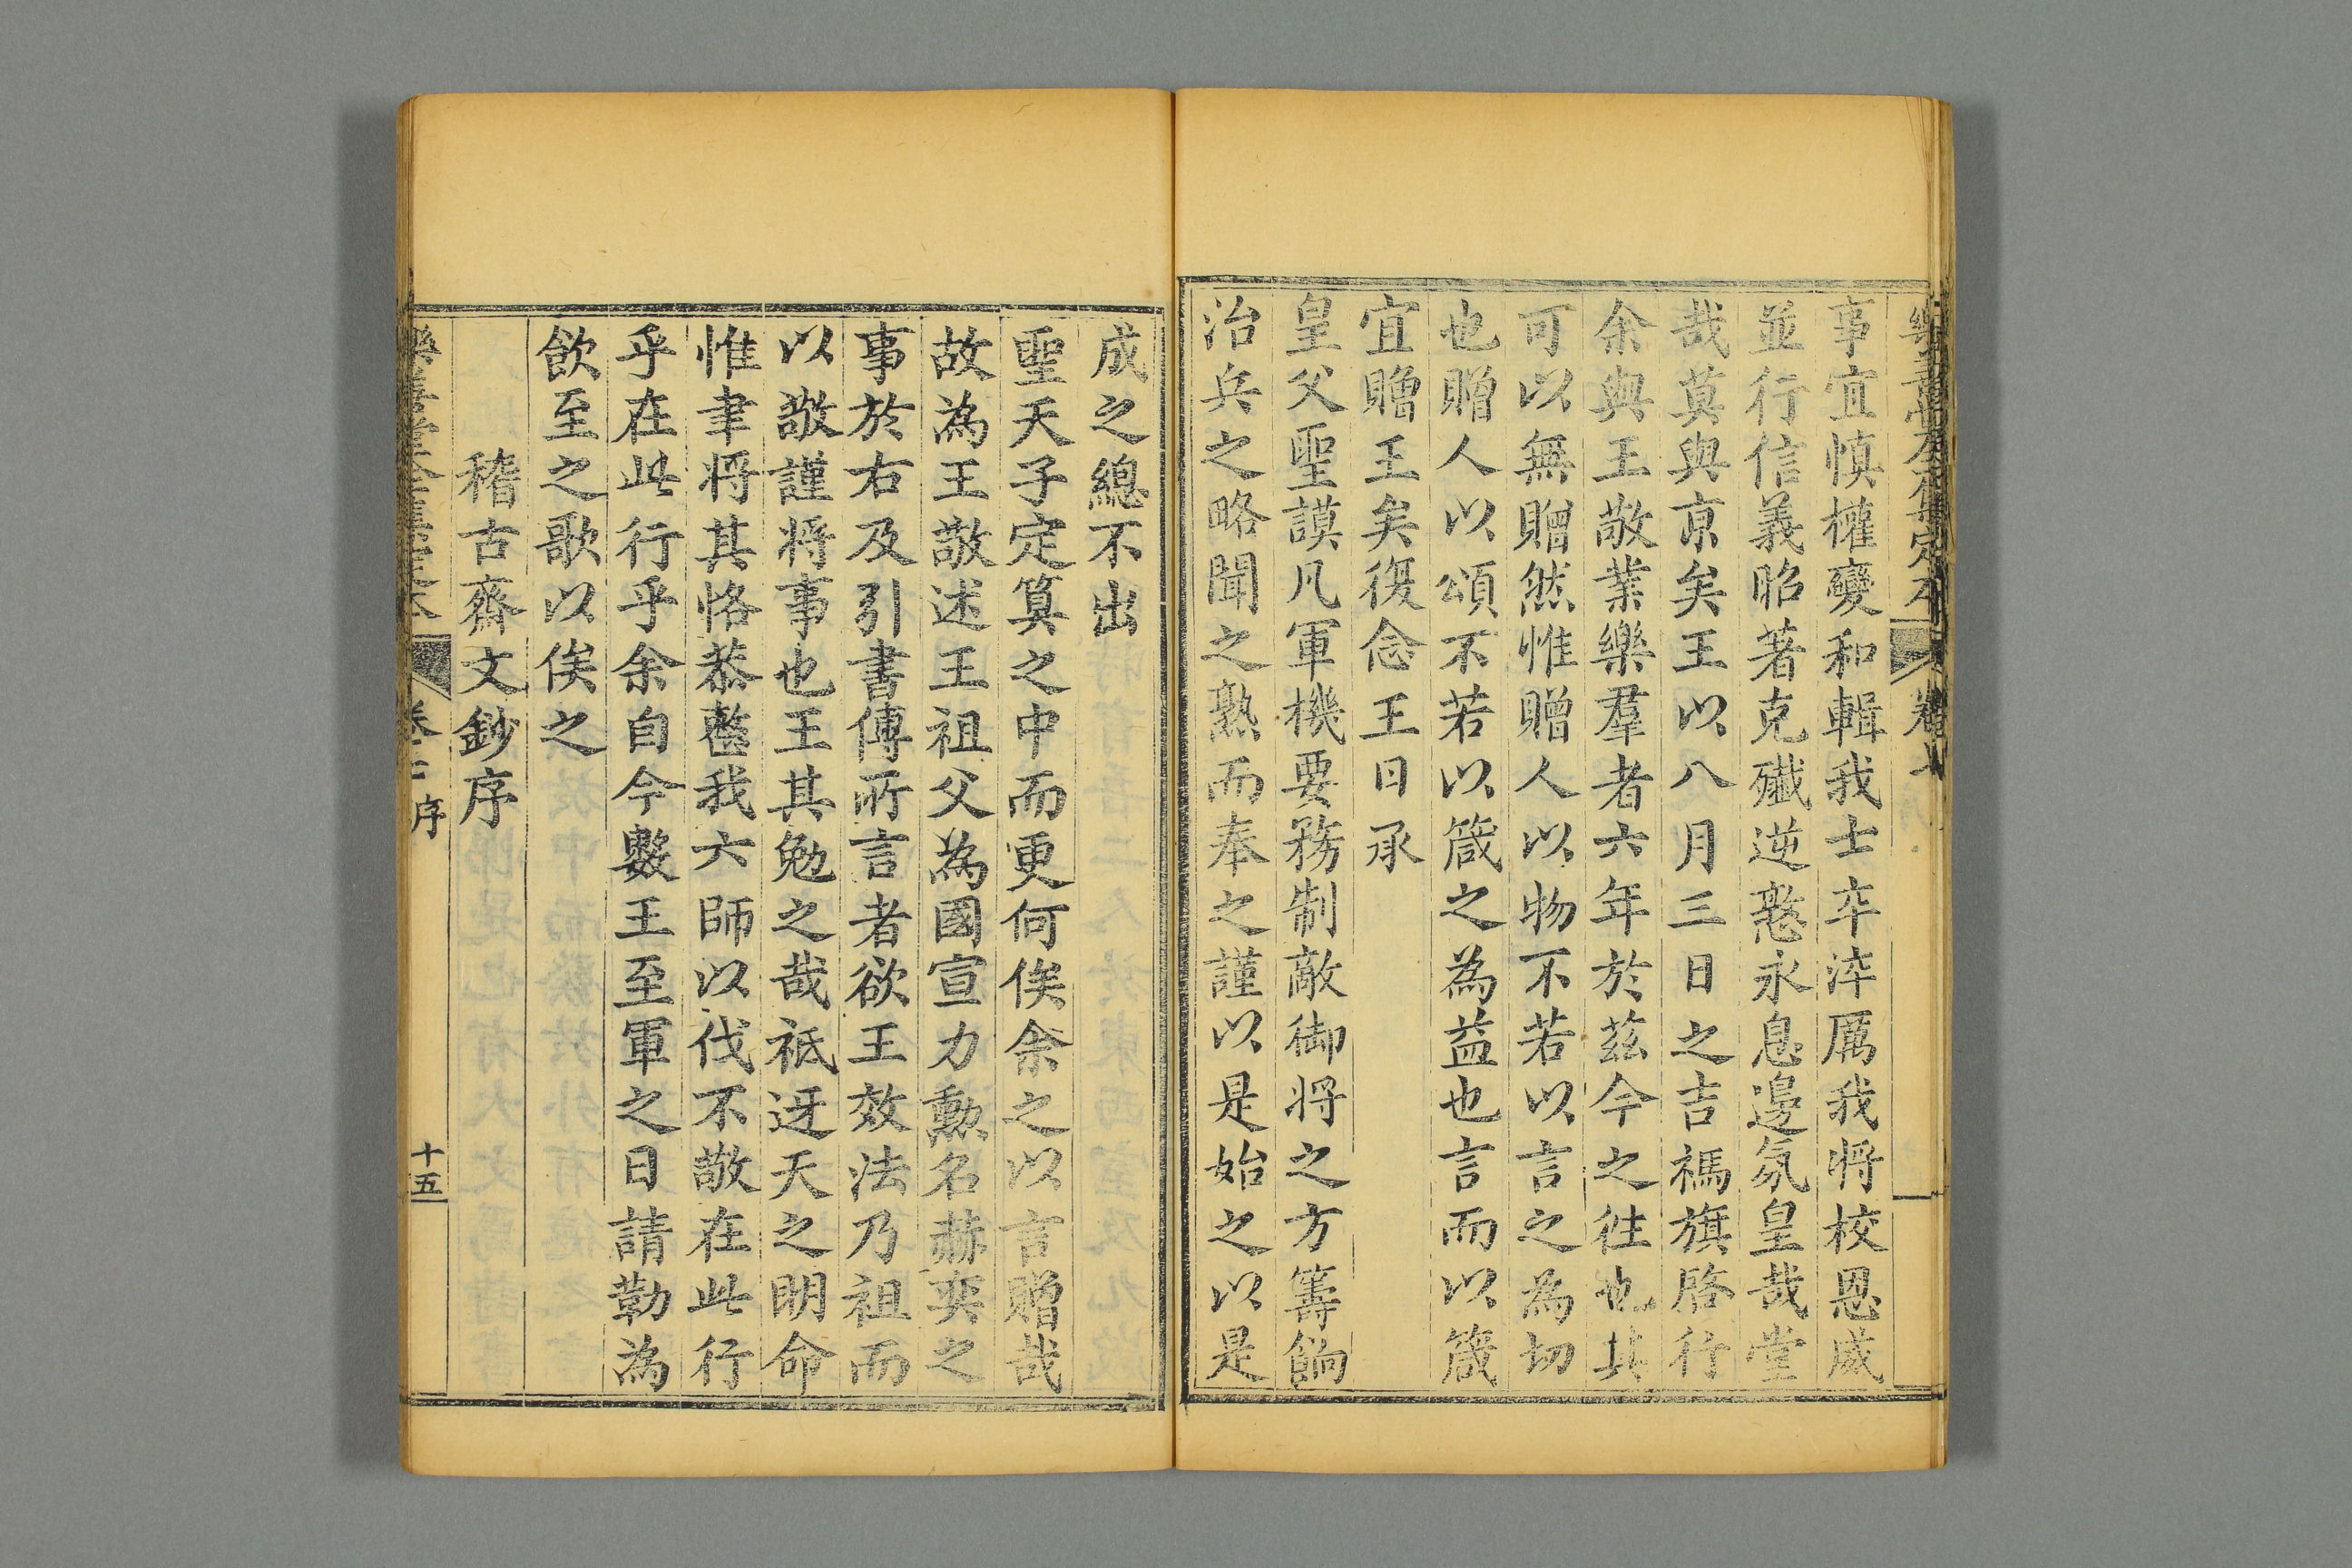 事宜慎權變和輯我士卒淬厲我將校恩威
並行信義昭著克殲逆憝永息邊氛皇哉堂
哉莫與京矣王以八月三日之吉禡旗啓行
余與王敬業樂羣者六年於茲今之往也其
可以無贈然惟贈人以物不若以言之為切
也贈人以頌不若以箴之為益也言而以箴
宜贈王矣復念王日承
皇父聖謨凡軍機要務制敵御將之方籌餉
治兵之略聞之熟而奉之謹以是始之以是
成之總不出
聖天子定算之中而更何俟余之以言贈哉
故為王敬述王祖父為國宣力勲名赫奕之
事於右及引書傳所言者欲王效法乃祖而
以敬謹將事也王其勉之哉祗迓天之明命
惟聿將其恪恭整我六師以伐不敬在此行
乎在此行乎余自今數王至軍之日請勒為
飲至之歌以俟之
稽古齋文鈔序
序
十五